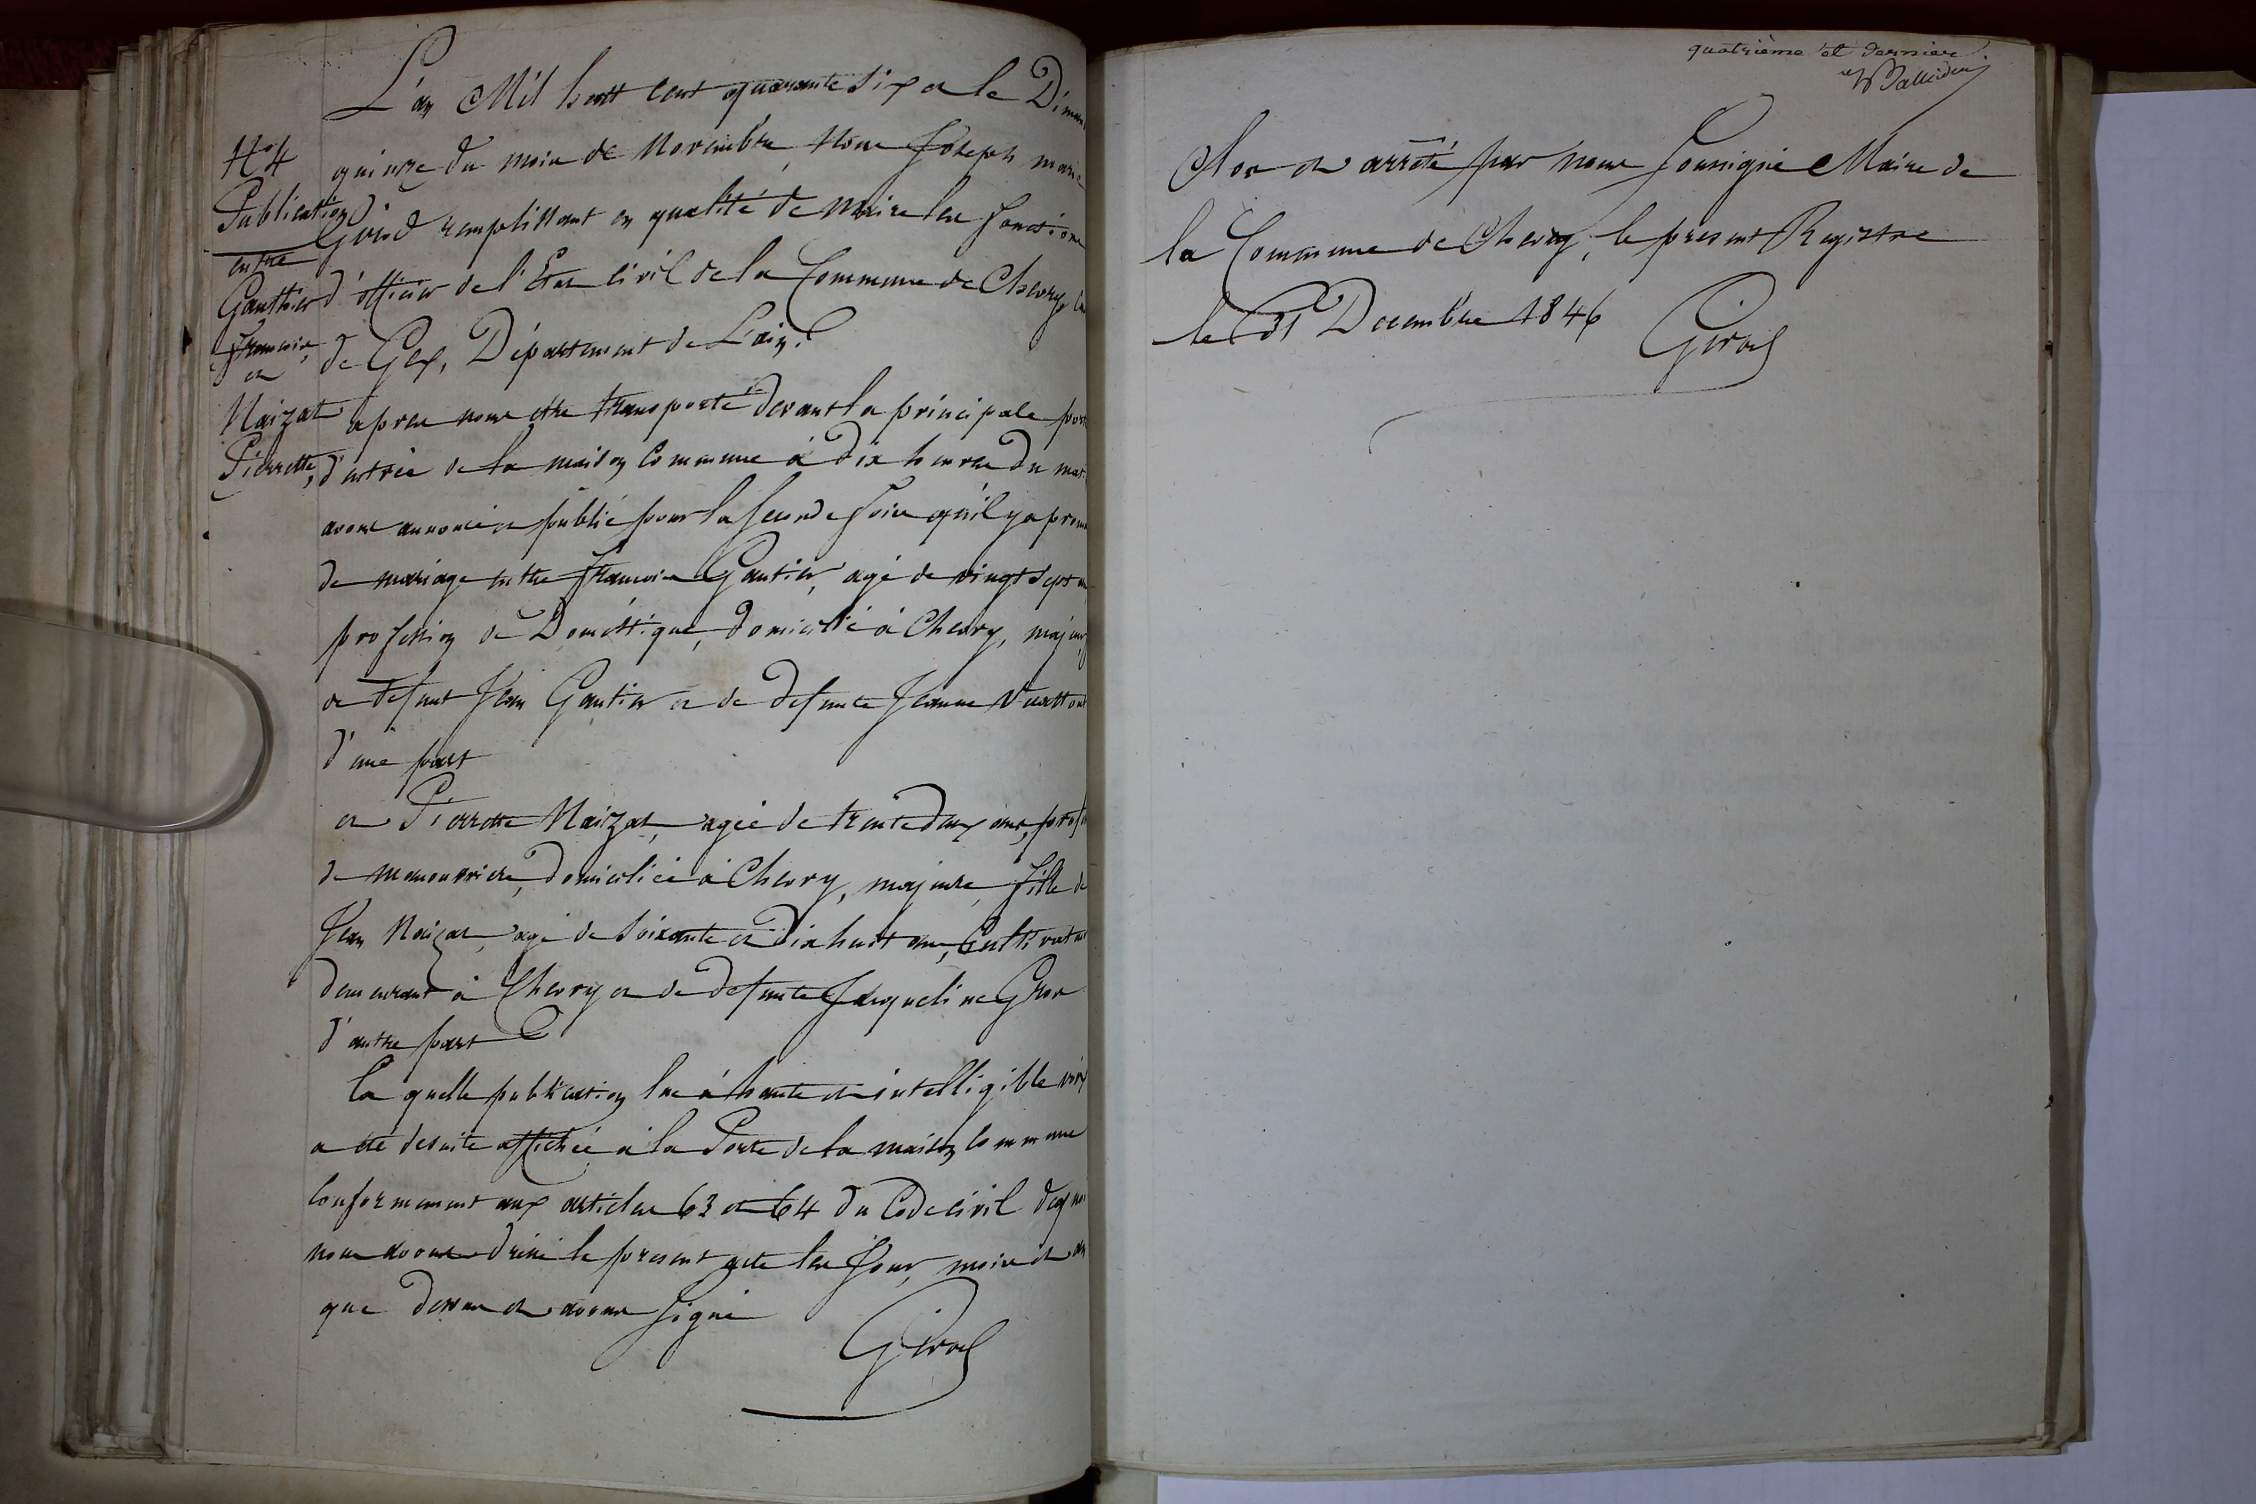 N° 4
Publication
entre
Gauthier
francois,
et
Naizat
Pierrette,
L'an Mil huit cent quarante six et le Diman
quinze du mois de Novembre, Nous Joseph marie
Girod remplissant en qualité de maire les fonctions
d'officier de l'État civil de la Commune de Chevry
de Gex, Département de L'ain.
apres nous etre transporté devant la principale por
d'entrée de la maison Commune à dix heures du mat
avons annoncé et publié pour la seconde fois qu'il y a prom
de mariage entre francois Gautier, agé de vingt sept an
profession de Doméstique, domicilié à Chevry, majeur,
de defunt Jean Gautier et de defunte Jeanne
d'une part
et Pierrette Naizat, agée de trente deux ans, profes
de manouvriere, Domiciliée à Chevry, majeure, fille de
Jean Naizat, agé de soixante et dix huit ans, Cultivateur
demeurant à Chevry et de defunte Jacqueline Gros
d'autre part
la quelle publication lue à haute et intelligible voix
a été desuite affichée à la Porte de la maison commune
conformement aux articles 63 et 64 du Code civil
nous avons dréssé le present acte les Jour, mois et an
que dessus et avons signé
Girod
quatrième et dernier
Clos et arrêté par nous soussigné Maire de
la Commune de Chevry, le présent Registre
le 31 Decembre 1846
Girod